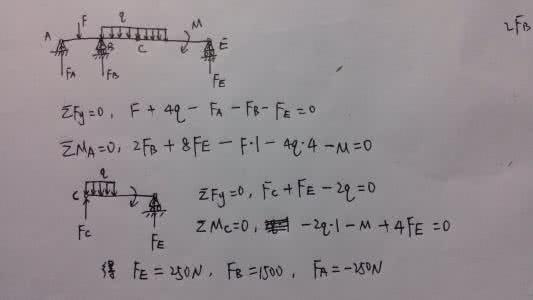 2FB
F q M
A B C E
FA FB FE
ΣFy=0, F+4q-FA-FB-FE=0
ΣMA=0, 2FB+8FE-F·1-4q·4-M=0
q
C
FC FE
ΣFy=0, FC+FE-2q=0
ΣMC=0, -2q·1-M+4FE=0
得 FE=250N, FB=1500, FA=-250N